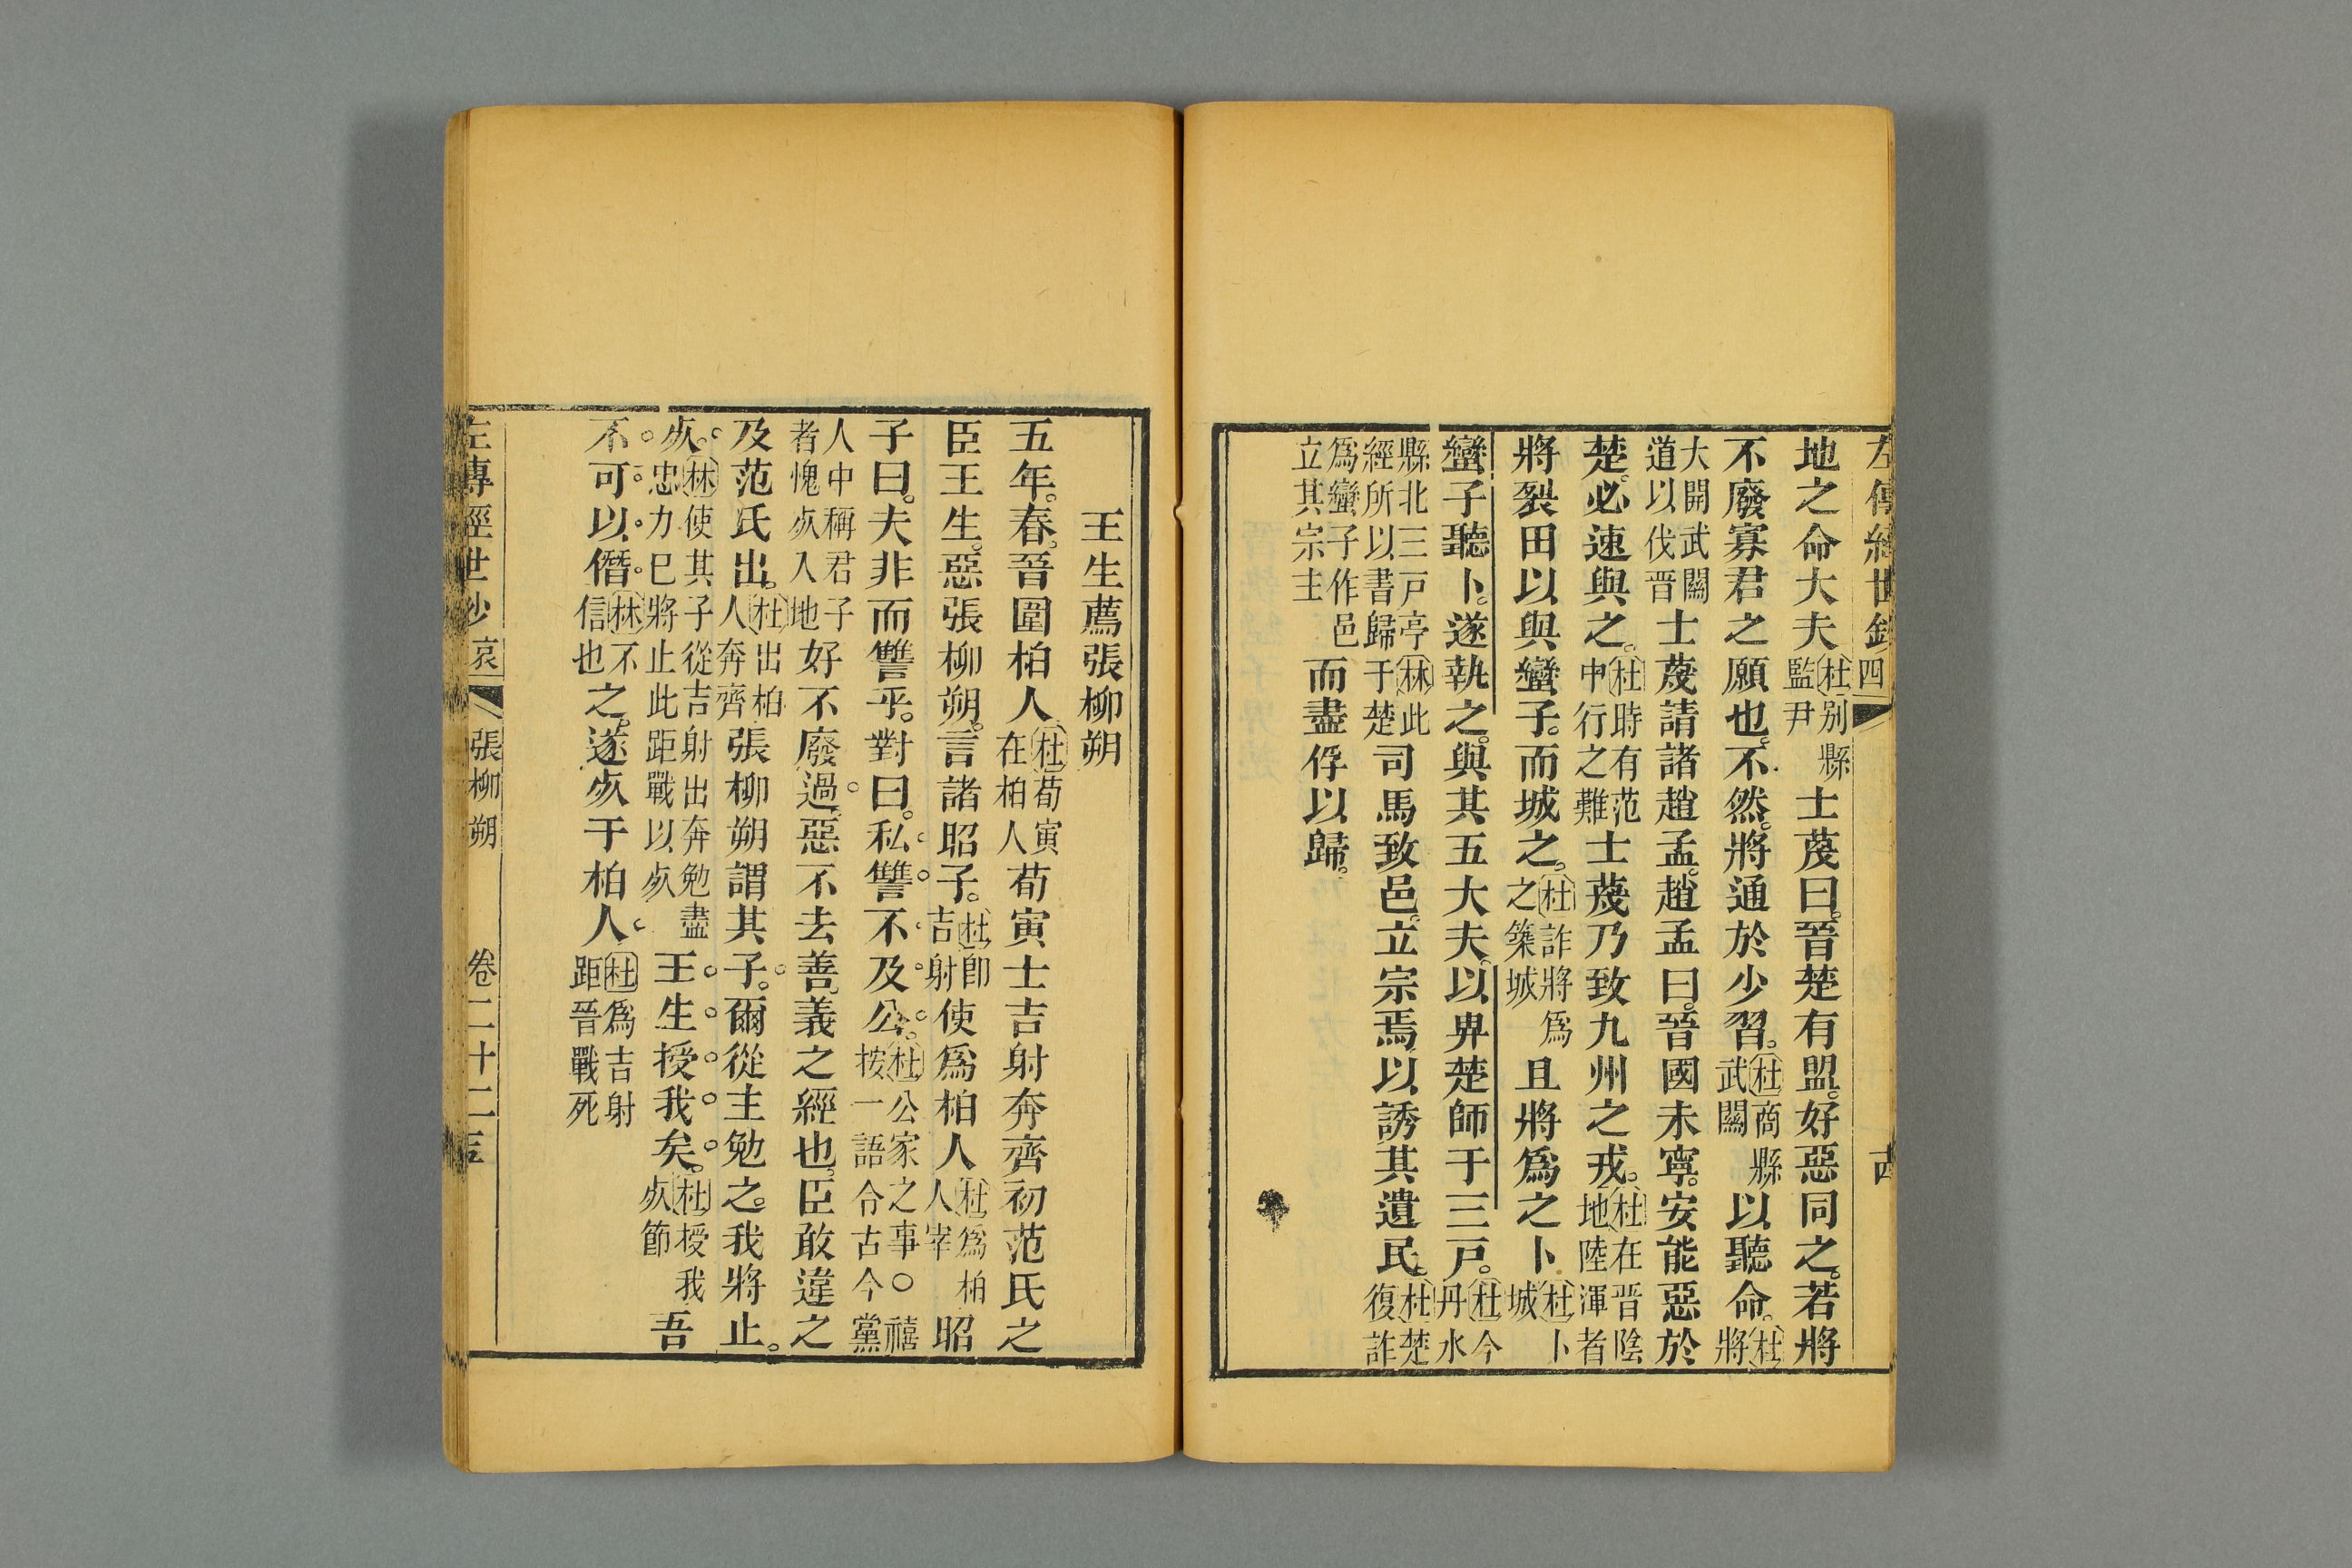 左傳經世鈔 四
地之命大夫杜別縣監尹士蔑曰。晉楚有盟。好惡同之。若將
不廢寡君之願也。不然。將通於少習。杜商縣武關以聽命。杜將
大開武關道以伐晉士蔑請諸趙孟。趙孟曰。晉國未寧。安能惡於
楚。必速與之。杜時有范中行之難士蔑乃致九州之戎。杜在晉陰地陸渾者
將裂田以與蠻子。而城之。杜詐將爲之築城且將爲之卜杜卜城
蠻子聽卜。遂執之。與其五大夫。以畀楚師于三戸。杜今丹水
縣北三戸亭林此經所以書歸于楚司馬致邑。立宗焉。以誘其遺民。杜楚復詐
爲蠻子作邑立其宗主而盡俘以歸。
王生薦張柳朔
五年。春。晉圍柏人杜荀寅在柏人荀寅士吉射奔齊初范氏之
臣王生。惡張柳朔。言諸昭子。杜卽吉射使爲柏人杜爲柏人宰昭
子曰。夫非而讐乎。對曰。私讐不及公。杜公家之事○禧按一語令古今黨
人中稱君子者愧𣦸入地好不廢過。惡不去善。義之經也。臣敢違之
及范氏出。杜出柏人奔齊張柳朔謂其子。爾從主勉之。我將止。
𣦸。林使其子從吉射出奔勉盡忠力巳將止此距戰以𣦸王生授我矣。杜授我𣦸節吾
不可以僭林不信也之。遂𣦸于柏人杜爲吉射距晉戰死
左傳經世鈔 哀 張柳朔 卷二十二